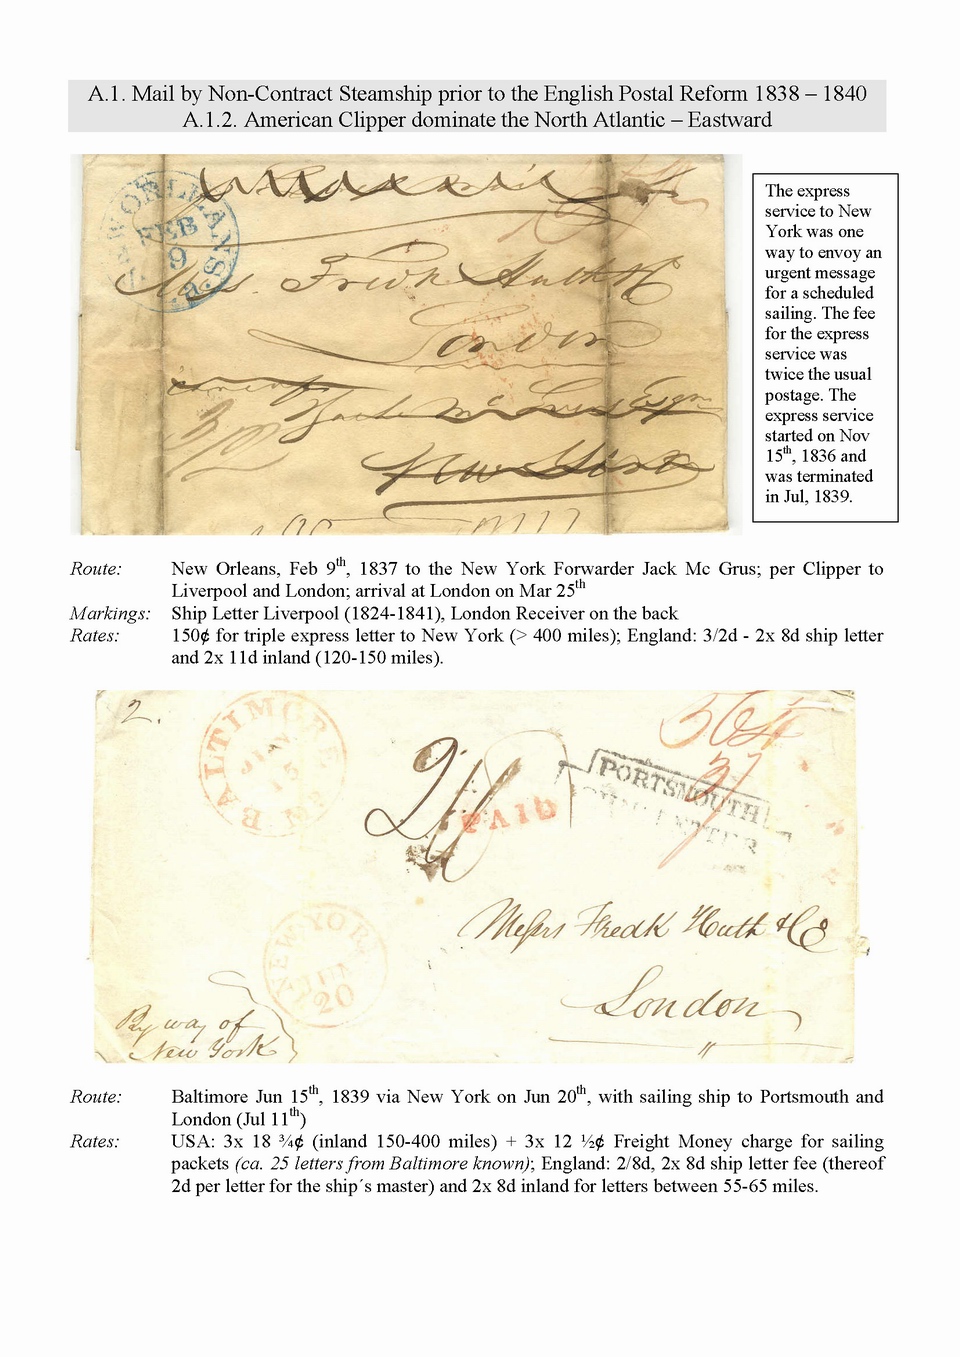 A.1. Mail by Non-Contract Steamship prior to the English Postal Reform 1838 – 1840
A.1.2. American Clipper dominate the North Atlantic – Eastward
NEW ORLEANS
FEB
9
Messrs. Fredk Huth & Co
London
New York
The express
service to New
York was one
way to envoy an
urgent message
for a scheduled
sailing. The fee
for the express
service was
twice the usual
postage. The
express service
started on Nov
15th, 1836 and
was terminated
in Jul, 1839.
Route: New Orleans, Feb 9th, 1837 to the New York Forwarder Jack Mc Grus; per Clipper to
Liverpool and London; arrival at London on Mar 25th
Markings: Ship Letter Liverpool (1824-1841), London Receiver on the back
Rates: 150¢ for triple express letter to New York (> 400 miles); England: 3/2d - 2x 8d ship letter
and 2x 11d inland (120-150 miles).
2.
BALTIMORE
15
PAID
PORTSMOUTH
SHIP LETTER
Messrs Fredk Huth & Co
London
NEW YORK
JUN
20
By way of
New York
Route: Baltimore Jun 15th, 1839 via New York on Jun 20th, with sailing ship to Portsmouth and
London (Jul 11th)
Rates: USA: 3x 18 ¾¢ (inland 150-400 miles) + 3x 12 ½¢ Freight Money charge for sailing
packets (ca. 25 letters from Baltimore known); England: 2/8d, 2x 8d ship letter fee (thereof
2d per letter for the ship´s master) and 2x 8d inland for letters between 55-65 miles.